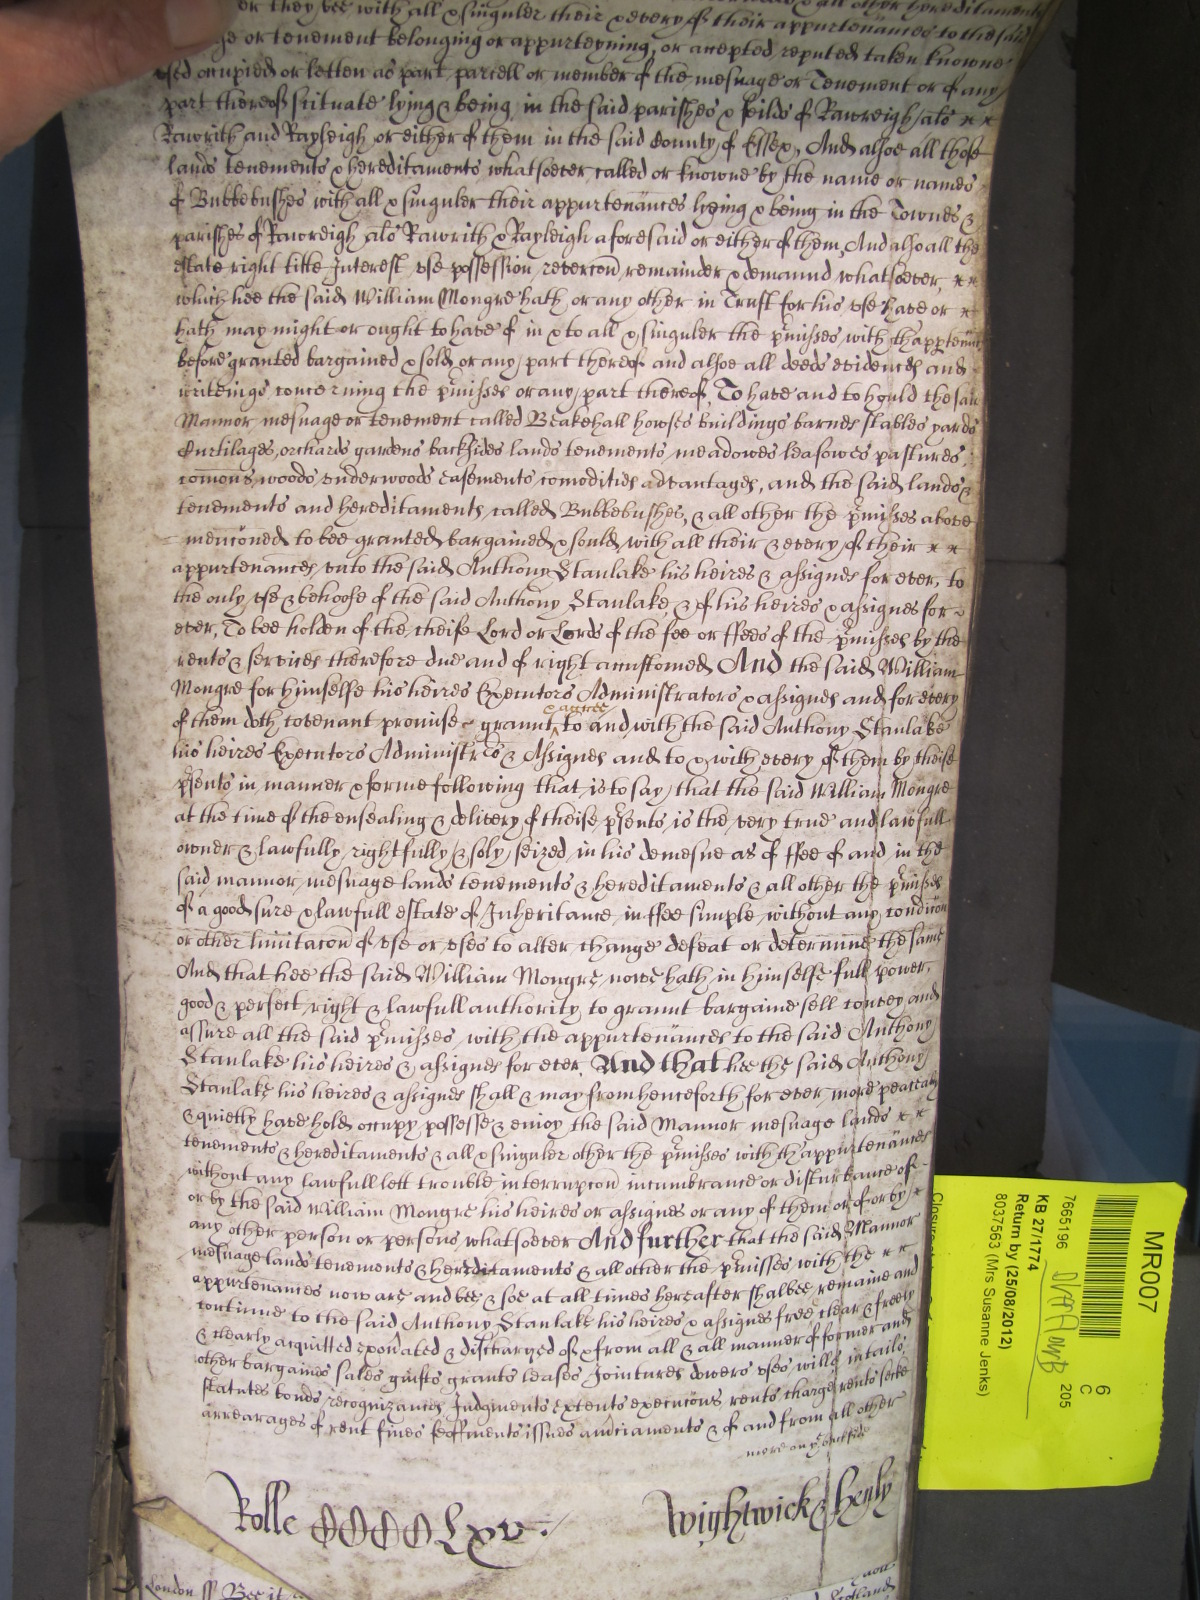 or they bee with all & singuler their & every of their appurtenances to the said
or tenement belonging or apperteyning, or accepted reputed taken knowne
used occupied or letten as part, parcell or member of the mesuage or Tenement or of any
part thereof scituate lying & being, in the said parishes & feilds of Rawreigh als
Rawrith and Rayleigh or either of them in the said County of Essex, And alsoe all those
lands tenements & hereditaments whatsoever called or knowne by the name or names
of Bubbebushes with all & singuler their appurtenances lyeing & being in the Townes &
parishes of Rawreigh als Rawrith & Rayleigh aforesaid or either of them, And also all the
estate right title Interest, use possession, revercon, remainder & demaund whatsoever,
which hee the said William Mongre hath or any other in Trust for his use have or
hath may might or ought to have of in & to all & singuler the p'misses with thapp'tenncs
before granted bargained & sold or any part thereof and alsoe all deeds evidences and
writeings concerning the p'misses or any part thereof, To have and to hould the said
Mannor mesuage or tenement called Beakehall howses buildings barnes stables yards
Curtilages, orchards gardens backsides lands tenements meadowes leasowes pastures
comons, woods, underwoods easements comodities advantages, and the said lands
tenements and hereditaments called Bubbebushes, & all other the p'misses above
mencioned to bee granted bargained & sould, with all their & every of their
appurtenances, unto the said Anthony Stanlake his heires & assignes for ever, to
the only use & behoofe of the said Anthony Stanlake & of his heires & assignes for
ever, To bee holden of the cheife Lord or Lords of the fee or ffees of the p'misses by the
rents & services therefore due and of right accustomed And the said William
Mongre for himselfe his heires Executors Administrators & assignes and for every
of them doth covenant promise & graunt & agree to and with the said Anthony Stanlake
his heires Executors Administrs & Assignes and to & with every of them by theise
p'sents in manner & forme following that is to say, that the said William Mongre
at the time of the ensealing & delivery of theise p'sents, is the very true and lawfull
owner & lawfully, rightfully & soly, seized, in his demesne as of ffee of and in the
said mannor, mesuage lands tenements & hereditaments & all other the p'misses
of a good sure & lawfull estate of Inheritance, in ffee simple, without any, condicon
or other limitacon of use or uses to alter, change defeat or determine the same
And that hee the said William Mongre nowe hath in himselfe full power,
good & perfect right & lawfull authority, to graunt bargaine sell convey and
assure all the said p'misses, with the appurtenances to the said Anthony
Stanlake his heires & assignes for ever. And that hee the said Anthony
Stanlake his heires & assignes shall & may from henceforth for ever, more peaceably
& quietly have hold, occupy possesse & enioy the said Mannor mesuage lands
tenements & hereditaments & all & singuler other the p'misses with thappurtenances
without any lawfull lett trouble interrupcon incumbrance or disturbance of
or by the said William Mongre his heires or assignes or any of them or of or by
any other person or persons whatsoever And further that the said Mannor
mesuage lands tenements & hereditaments & all other the p'misses with the
appurtenances now are and bee & soe at all times hereafter shalbee remaine and
continue to the said Anthony Stanlake his heires & assignes free clear & freely
& clearly acquitted exon'ated & discharged of & from all & all manner of former and
other bargaines sales guifts grants leases Joyntures dowers uses wills intails,
statutes bonds recognizances Judgments extents execucons rents charge rents secke
arrearages of rent fines feoffments issues amerciaments & of and from all other
more on ye backside
Rolle CCCCLxv
Wightwick & Henly
London ss Bee it
MR007
6
C
205
7665196
KB 27/1774
Return by (25/08/2012)
8037563 (Mrs Susanne Jenks)